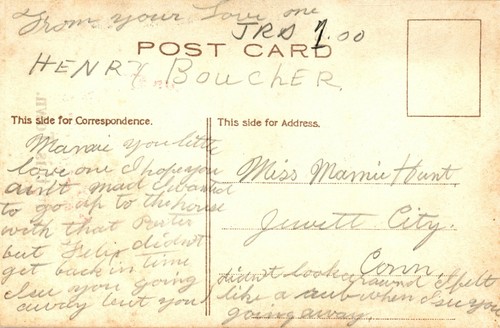 From your Love one
JRD 1.00
POST CARD
HENRY BOUCHER.
This side for Correspondence.
This side for Address.
Mamie you little
love one I hope you
ain't mad I wanted
to go up to the house
with that
but Felix didn't
get back in time
I see you going
away but you
Miss Mamie Hunt.
Jewett City.
Conn.
didn't look around I felt
like a cub when I see you
going away.